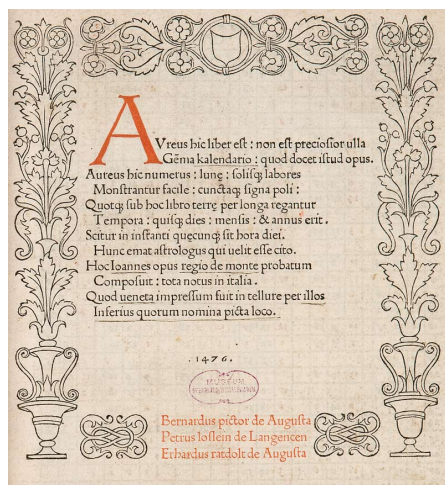 AVreus hic liber est : non est preciosior ulla
Gēma kalendario : quod docet istud opus.
Aureus hic numerus : lunę : solisq; labores
Monstrantur facile : cunctaq; signa poli :
Quotq; sub hoc libro terrę per longa regantur
Tempora : quisq; dies : mensis : & annus erit .
Scitur in instanti quęcunq; sit hora diei.
Hunc emat astrologus qui uelit esse cito.
Hoc Ioannes opus regio de monte probatum
Composuit : tota notus in italia .
Quod ueneta impressum fuit in tellure per illos
Inferius quorum nomina picta loco.
.1476.
MUSEUM
Bernardus pictor de Augusta
Petrus loslein de Langencen
Erhardus ratdolt de Augusta